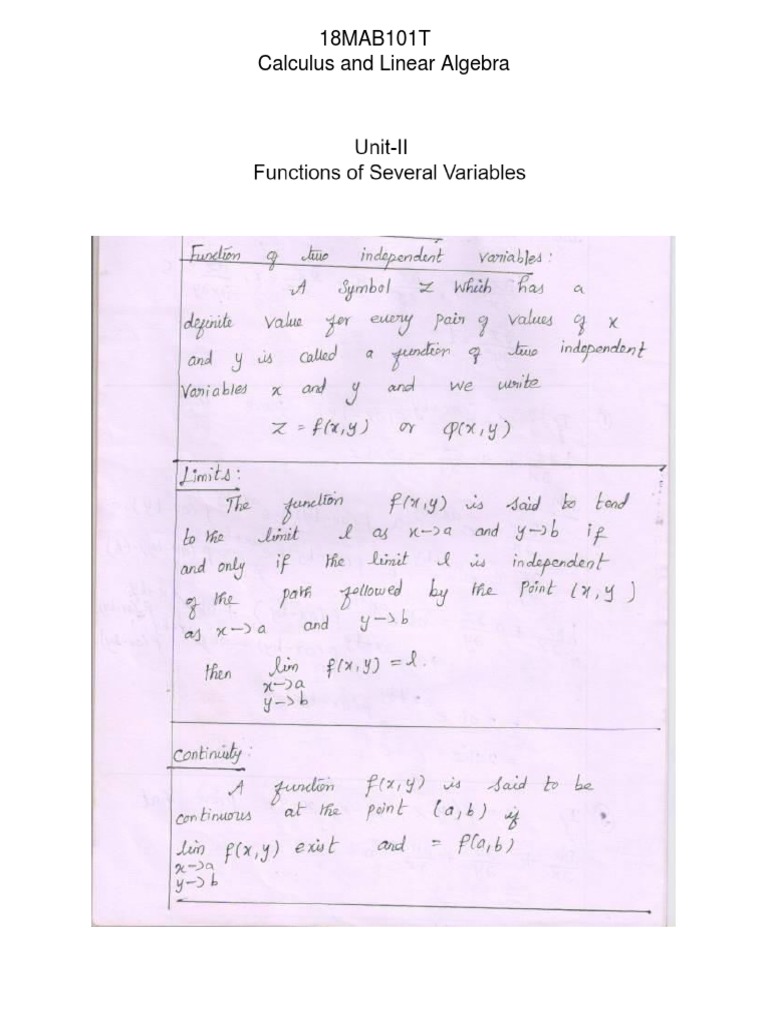 18MAB101T
Calculus and Linear Algebra
Unit-II
Functions of Several Variables
Function of two independent variables:
A Symbol Z which has a
definite value for every pair of values of x
and y is called a function of two independent
Variables x and y and we write
Z = f(x,y) or φ(x,y)
Limits:
The function f(x,y) is said to tend
to the limit l as x->a and y->b if
and only if the limit l is independent
of the path followed by the Point (x,y)
as x->a and y->b
then lim f(x,y) = l.
x->a
y->b
Continuity:
A function f(x,y) is said to be
continuous at the point (a,b) if
lim f(x,y) exist and = f(a,b)
x->a
y->b